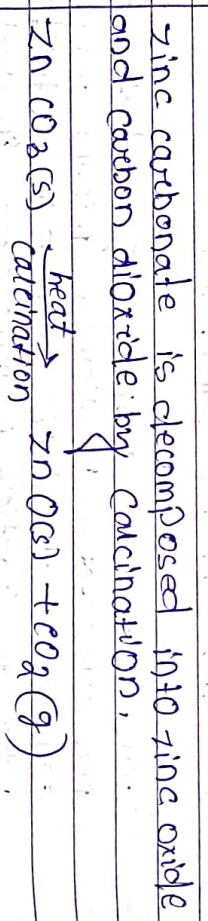 zinc carbonate is decomposed into zinc oxide
and carbon dioxide by calcination,
zn CO3(s) heat→ calcination zn O(s) + CO2(g)